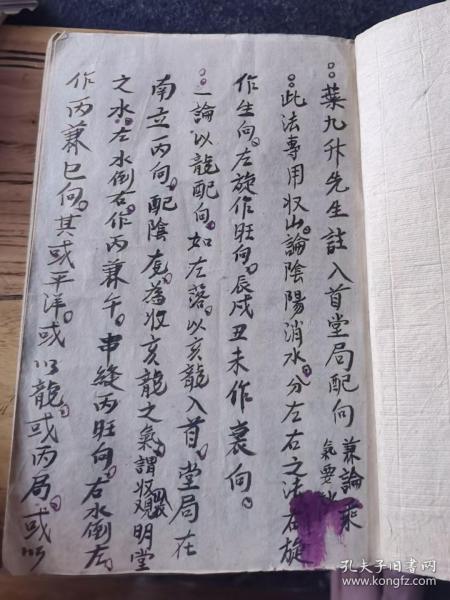 葉九升先生註入首堂局配向 兼論乘氣要
此法專用收山論陰陽消水分左右之法右旋
作生向左旋作旺向辰戌丑未作衰向
一論以龍配向如左落以亥龍入首堂局在
南立丙向配陰龙為收亥龍之氣謂收明堂
之水左水倒右作丙兼午串縫丙旺向右水倒左
作丙兼巳向其或平洋或以龍或丙局或以
孔夫子旧书网
www.kongfz.com